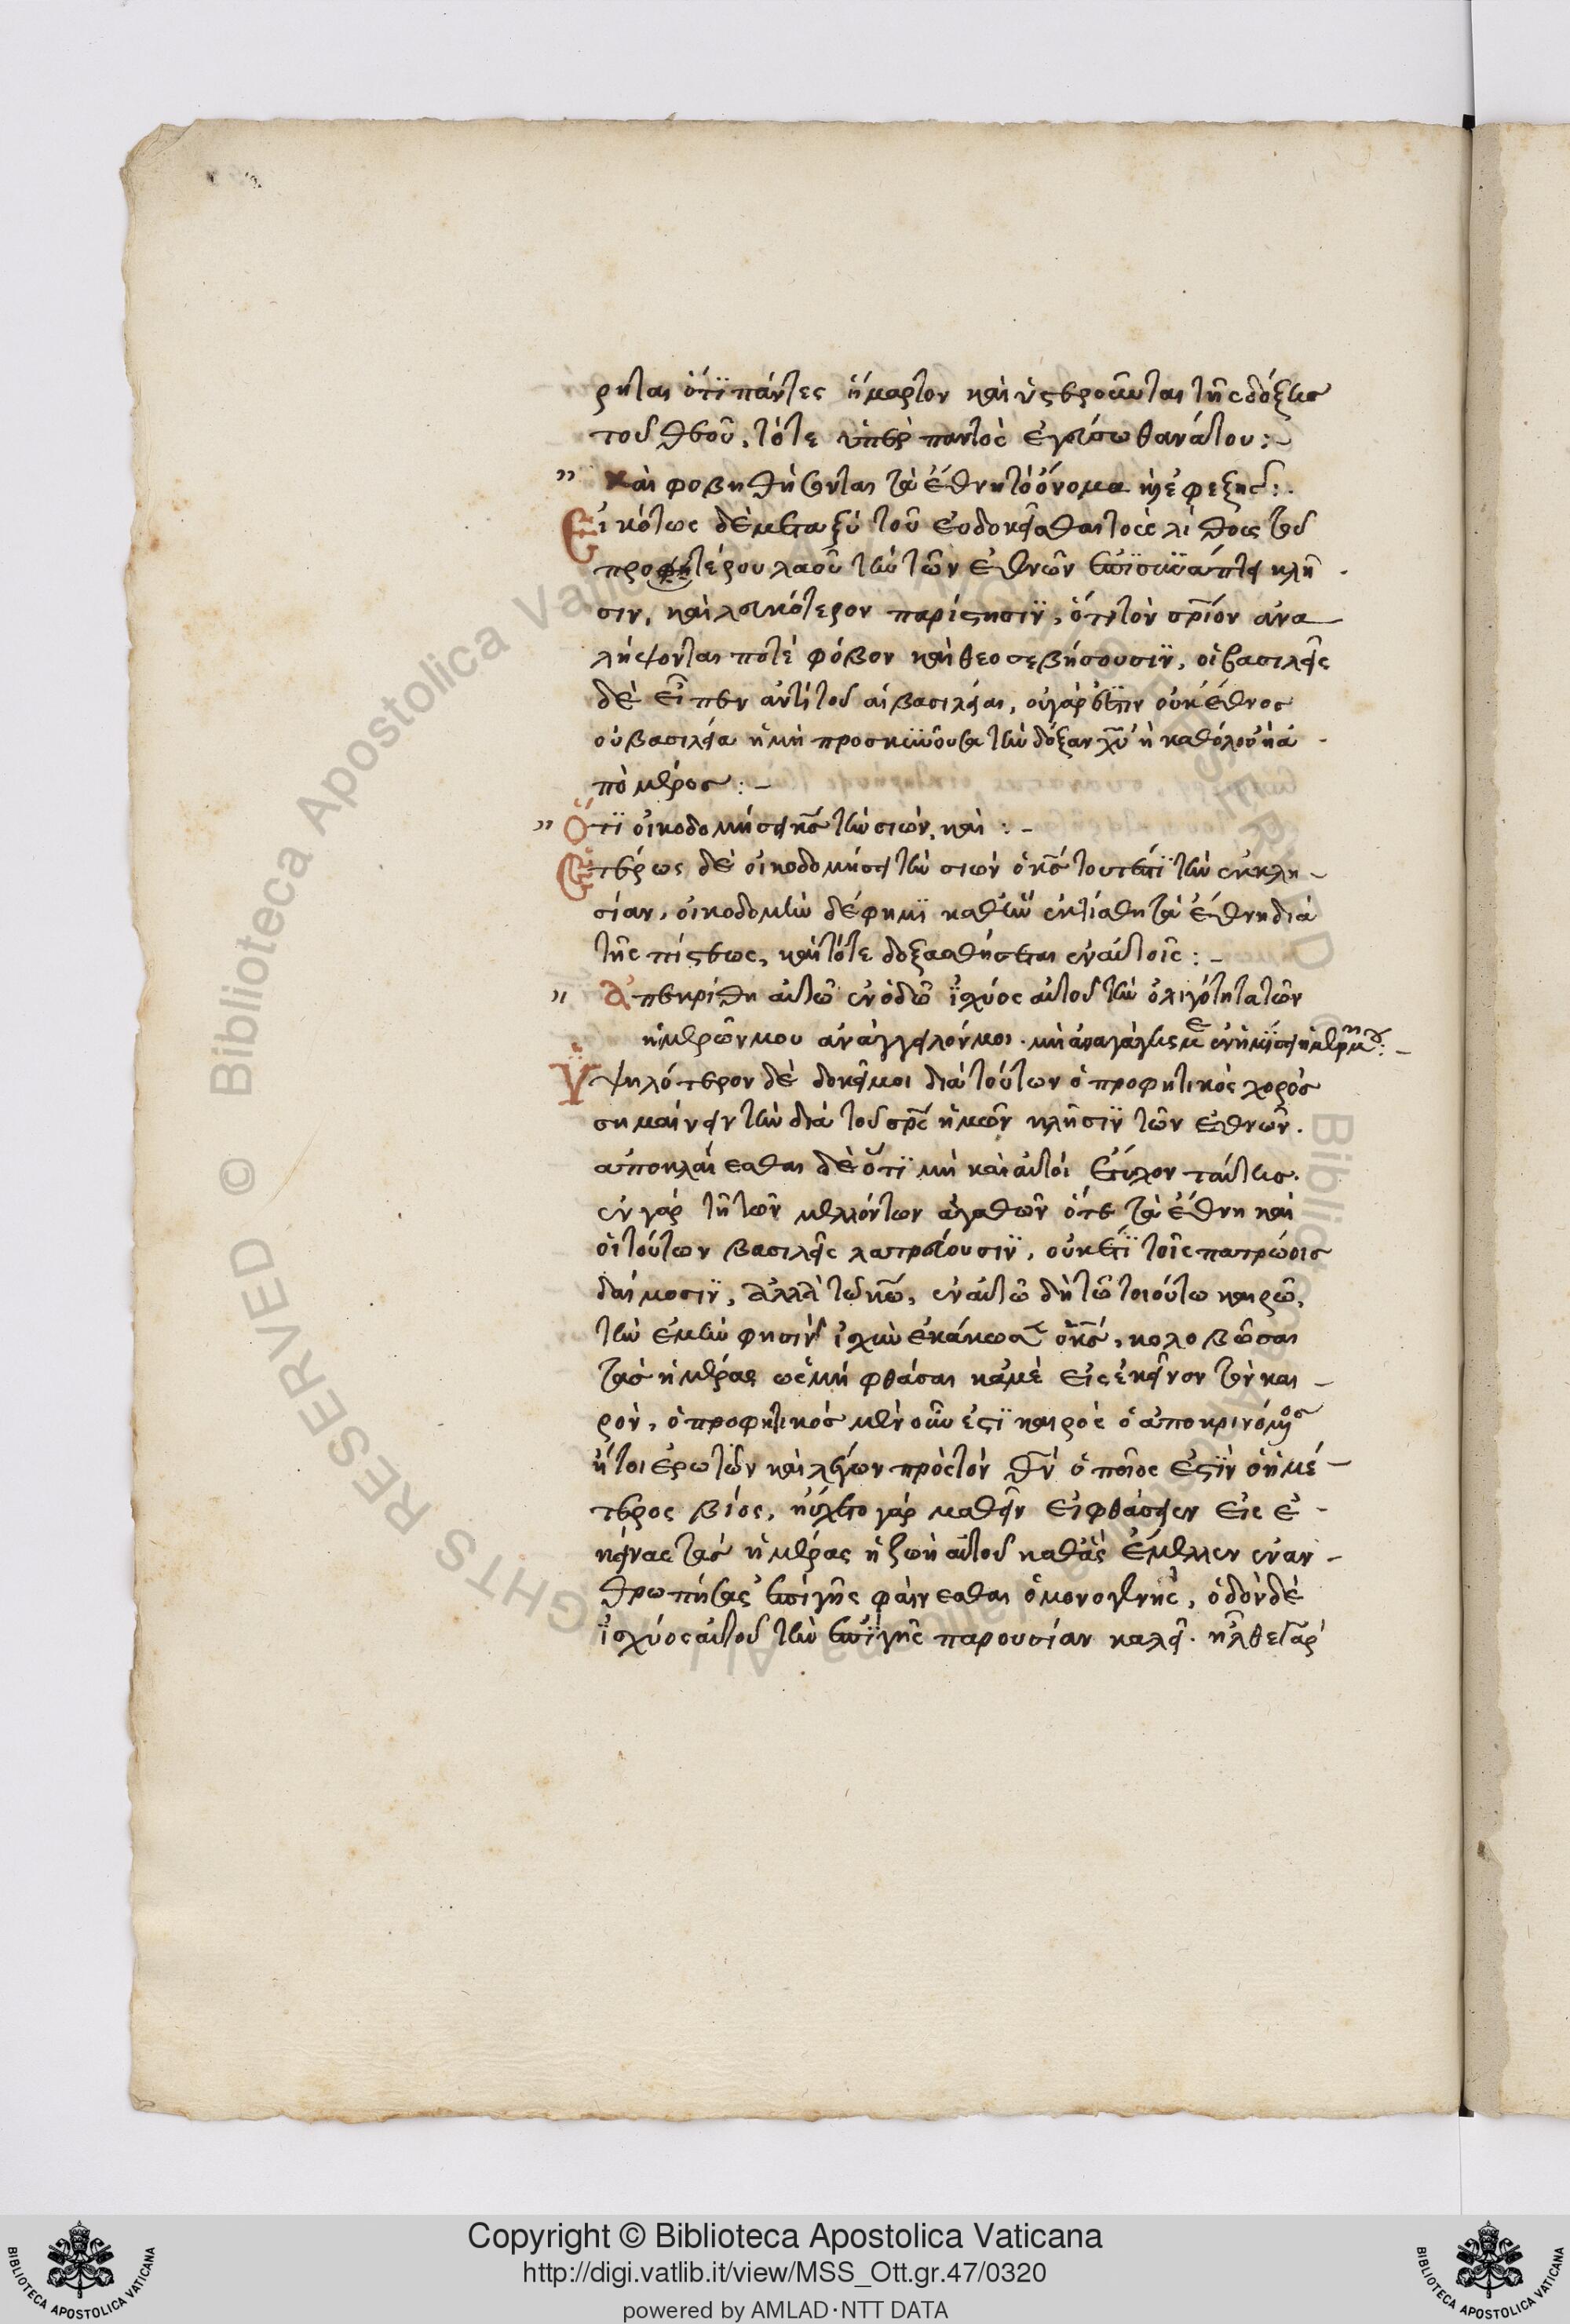 ρηται ὅτϊ πάντες ἥμαρτον καὶ ὑστεροῦνται τῆς δόξης
τοῦ θεοῦ, τότε ὑπὲρ παντὸς ἐγεύσω θανάτου:~
" Καὶ φοβηθήσονται τὰ ἔθνη τὸ ὄνομα κ̣ ἐφεξῆς:.
Εἰκότως δὲ μεταξὺ τοῦ εὐδοκεῖσθαι τοὺς λίθους τοῦ
προφητέρου λαοῦ τὴν τῶν ἐθνῶν ἐπϊσυνάπτει κλῆ
σιν, καὶ λευκότερον παρίστησϊν, ὅτι τὸν σριον ἀνα
λήψονται ποτὲ φόβον καὶ θεοσεβήσουσϊν, οἱ βασιλεῖς
δὲ εἶπεν ἀντὶ τοῦ αἱ βασιλεῖαι, οὐ γάρ ἐστϊν οὐκ ἔθνος
οὐ βασιλεία ἡ μὴ προσκυνοῦσα τὴν δόξαν χυ ἢ καθόλου ἢ ἀ
πὸ μέρος:~
" Ὅτϊ οἰκοδομήσει κς τὴν σιών, καὶ:~
Ἑτέρως δὲ οἰκοδομήσει τὴν σιὼν ὁ κς τουτέστϊ τὴν ἐκκλη
σίαν, οἰκοδομὴν δέ φημϊ καθ' ἣν ἐκτίσθη τὰ ἔθνη διὰ
τῆς πίστεως, καὶ τότε δοξασθήσεται ἐν αὐτοῖς:~
" Ἀπεκρίθη αὐτῶ ἐν ὁδῶ ἰσχύος αὐτοῦ τὴν ὀλιγότητα τῶν
ἡμερῶν μου ἀνάγγειλόν μοι. μὴ ἀναγάγης με ἐν ἡμίσει ἡμερῶν μου:~
Ὑψηλότερον δὲ δοκεῖ μοι διὰ τούτων ὁ προφητικὸς χορὸς
σημαίνειν τὴν διὰ τοῦ σρς ἡμῶν κλῆσϊν τῶν ἐθνῶν.
ἀποκλαίεσθαι δὲ ὅτϊ μὴ καὶ αὐτοὶ ἔτυχον ταύτης.
ἐν γὰρ τῆ τῶν μελλόντων ἀγαθῶν ὅτε τὰ ἔθνη καὶ
οἱ τούτων βασιλεῖς λατρεύουσϊν, οὐκέτϊ τοῖς πατρώοις
δαίμοσϊν, ἀλλὰ τῶ κω, ἐν αὐτῶ δὴ τῶ τοιούτω καιρῶ,
τὴν ἐμὴν φησὶν ἰσχὺν ἐκάκωσεν ὁ κς, κολοβῶσαι
τὰς ἡμέρας ὡς μὴ φθάσαι κἀμὲ εἰς ἐκεῖνον τὸν και
ρὸν, ὁ προφητικὸς μὲν οὖν ἐστϊ καιρὸς ὁ ἀποκρινόμενος
ἤτοι ἐρωτῶν καὶ λέγων πρὸς τὸν θν ὁ ποῖος ἐστϊν ὁ ἡμέ
τερος βίος, ηὔχετο γὰρ μαθεῖν εἰ φθάσειεν εἰς ἐ
κείνας τὰς ἡμέρας ἡ ζωὴ αὐτοῦ καθ' ἃς ἔμελλεν ἐναν
θρωπήσας ἐπὶ γῆς φαίνεσθαι ὁ μονογενὴς, ὁδὸν δὲ
ἰσχύος αὐτοῦ τὴν ἐπϊ γῆς παρουσίαν καλεῖ. ἦλθε γὰρ
Copyright © Biblioteca Apostolica Vaticana
http://digi.vatlib.it/view/MSS_Ott.gr.47/0320
powered by AMLAD·NTT DATA